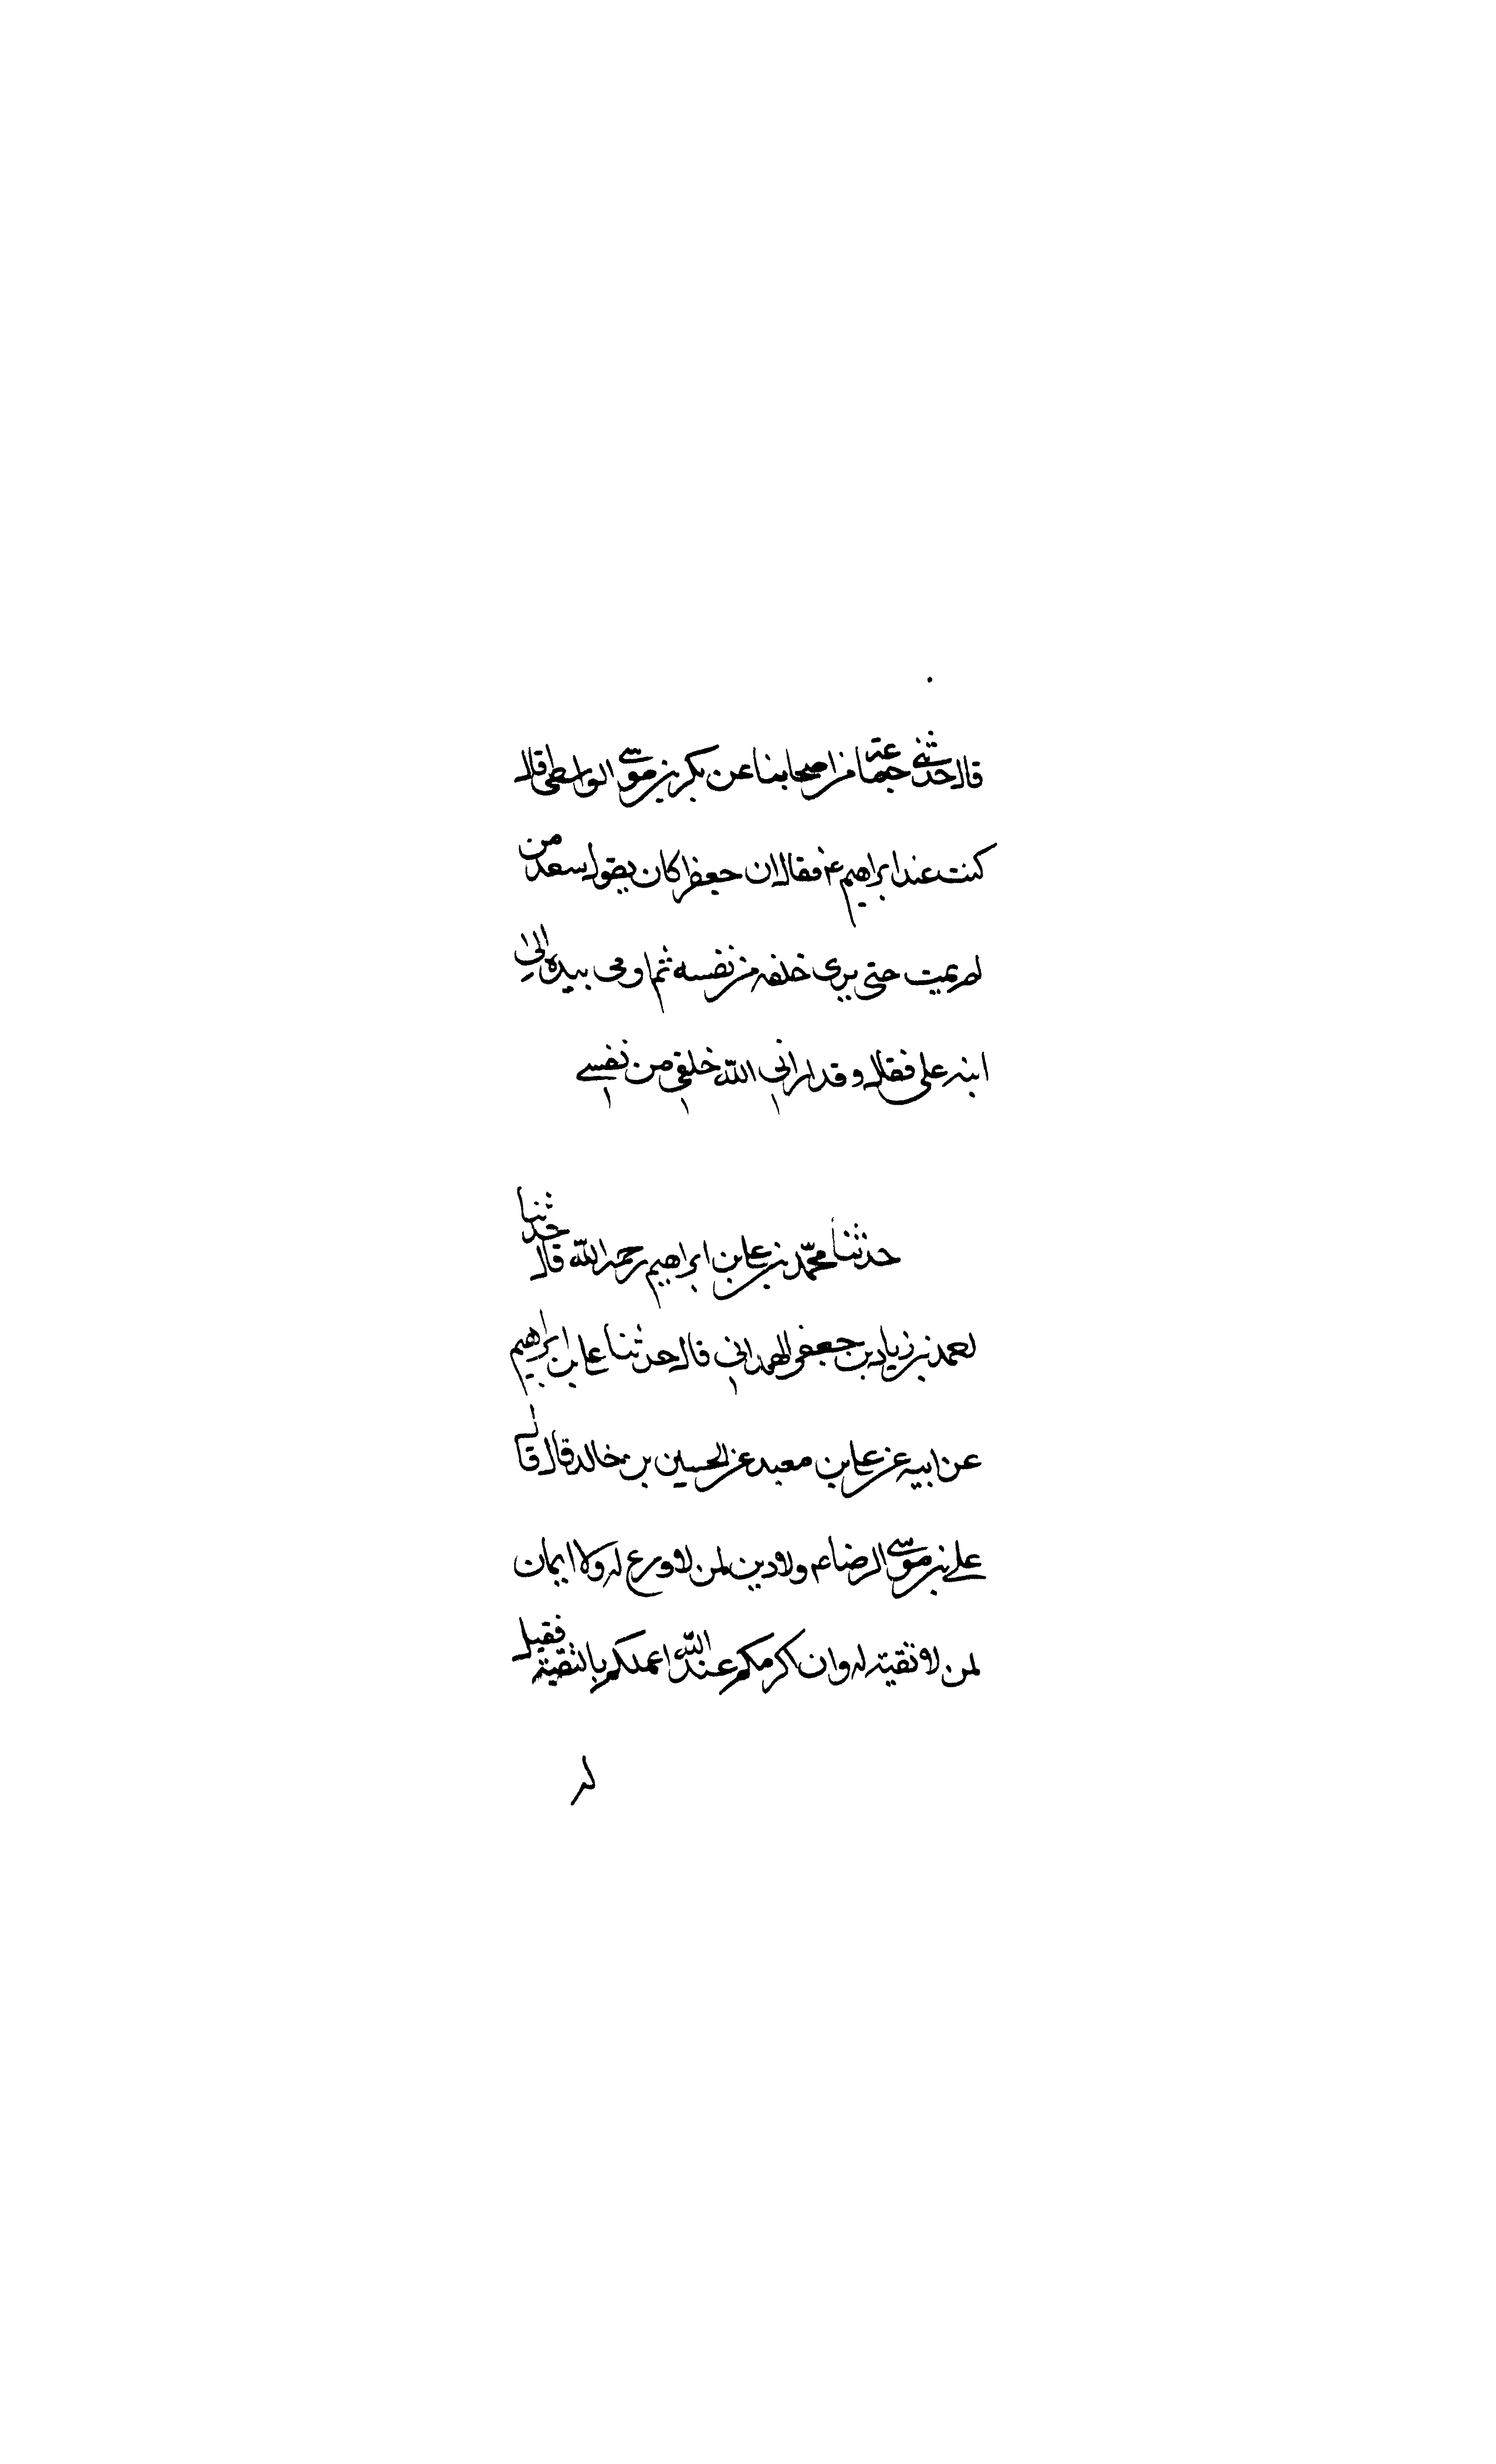 قال حدثني جماعة من اصحابنا عن بكر بن موسى الواسطي قال
كنت عند ابراهيم ع فقال ان جعفرا كان يقول سعد من
لم يمت حتى يرى خلفه من نفسه ثم اومى بيده الى
ابنه علي فقال وقد اراني الله خلفي من نفسي
حدثنا محمد بن علي بن ابراهيم رحمه الله قال حدثنا
احمد بن زياد بن جعفر الهمداني قال حدثنا علي بن ابراهيم
عن ابيه عن علي بن معبد عن الحسين بن خالد قال قال
علي بن موسى الرضا عم ولا دين لمن لا ورع له ولا ايمان
لمن لا تقية له وان اكرمكم عند الله اعملكم بالتقية فقيل
له